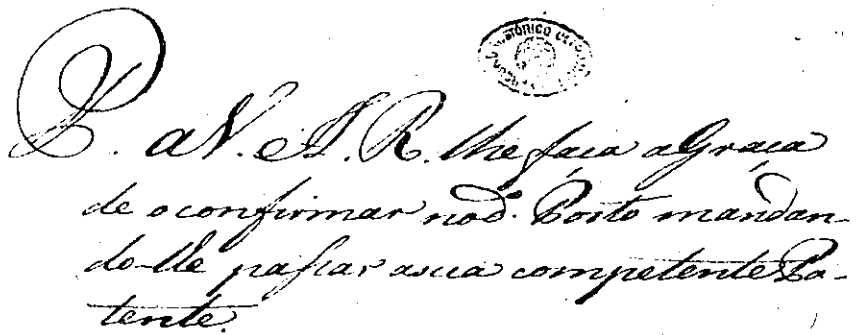 HISTÓRICO
P. a V. A. R. lhe faça a Graça
de o confirmar no d.º Posto mandan-
do-lhe passar a sua competente Pa-
tente.